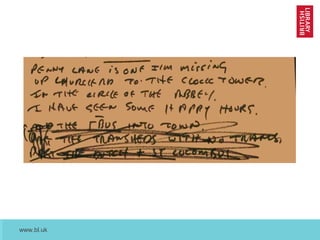 BRITISH
LIBRARY
PENNY LANE IS ONE I'M MISSING
UP CHURCH AND TO THE CLOCK TOWER.
IN THE CIRCLE OF THE ABBEY.
I HAVE SEEN SOME HAPPY HOURS.
THE INTO TOWN.
THE TRAMSHEDS WITH NO TRAMS,
www.bl.uk